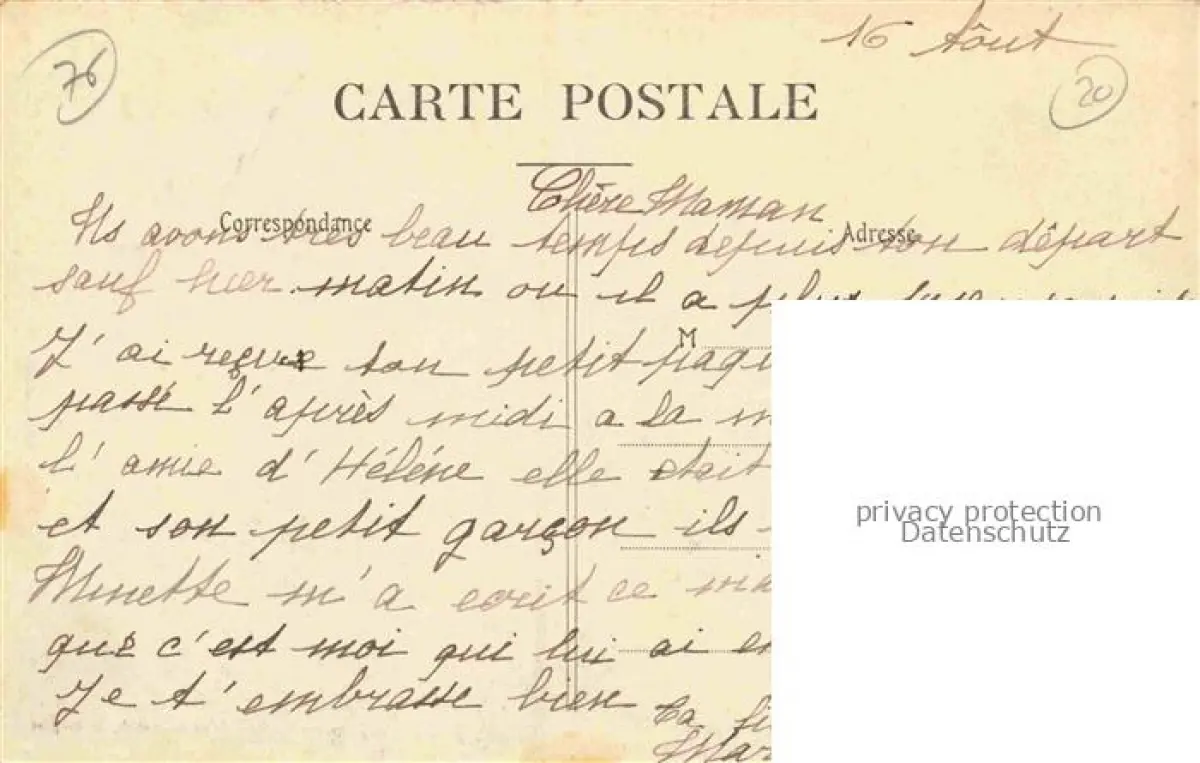 16 Aôut
76
CARTE POSTALE
20
Chère Maman
Correspondance
Adresse
Ns avons très beau temps depuis ton départ
sauf hier matin ou il a plu
M
J'ai reçue ton petit paq
passé l'après midi a la m
l'amie d'Hélène elle etait
et son petit garçon ils
privacy protection
Datenschutz
Minette m'a ecrit ce ma
que c'est moi qui lui ai en
Je t'embrasse bien
Ta fi
Mar